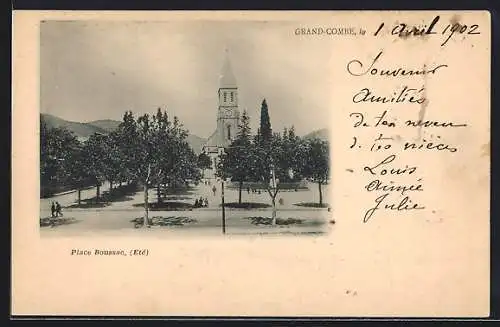 GRAND-COMBE, le 1 Avril 1902
Souvenir
Amitiés
de ton neveu
& tes nièces
Louis
Aimée
Julie
Place Boussac, (Eté)